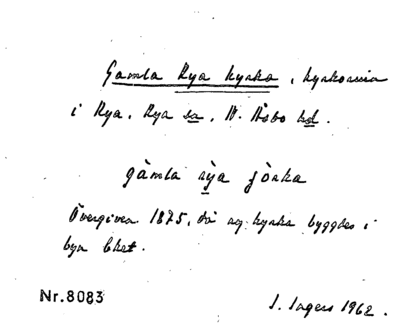 Gamla Rya kyrka, kyrkoruin
i Rya, Rya sn, N. Åsbo hd.
gàmla rỳa çörka
Övergiven 1875, då ny kyrka byggdes i
bya
Nr. 8083
I. Ingers 1962.